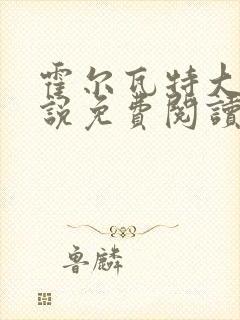 霍尔瓦特大
説免費閱讀
鲁麟